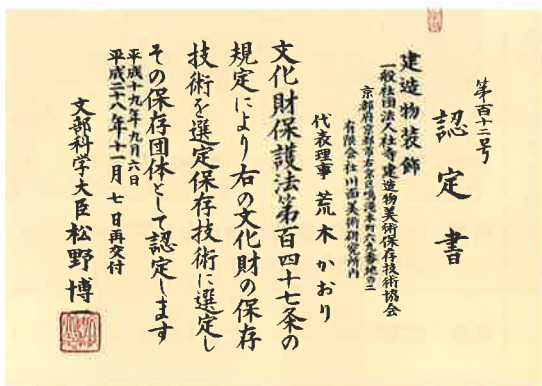 第百十二号
認定書
建造物装飾
一般社団法人社寺建造物美術保存技術協会
京都府京都市右京区鳴滝本町六九番地の二
有限会社川面美術研究所内
代表理事 荒木かおり
文化財保護法第百四十七条の
規定により右の文化財の保存
技術を選定保存技術に選定し
その保存団体として認定します
平成十九年九月六日
平成二十八年十一月七日再交付
文部科学大臣 松野博一